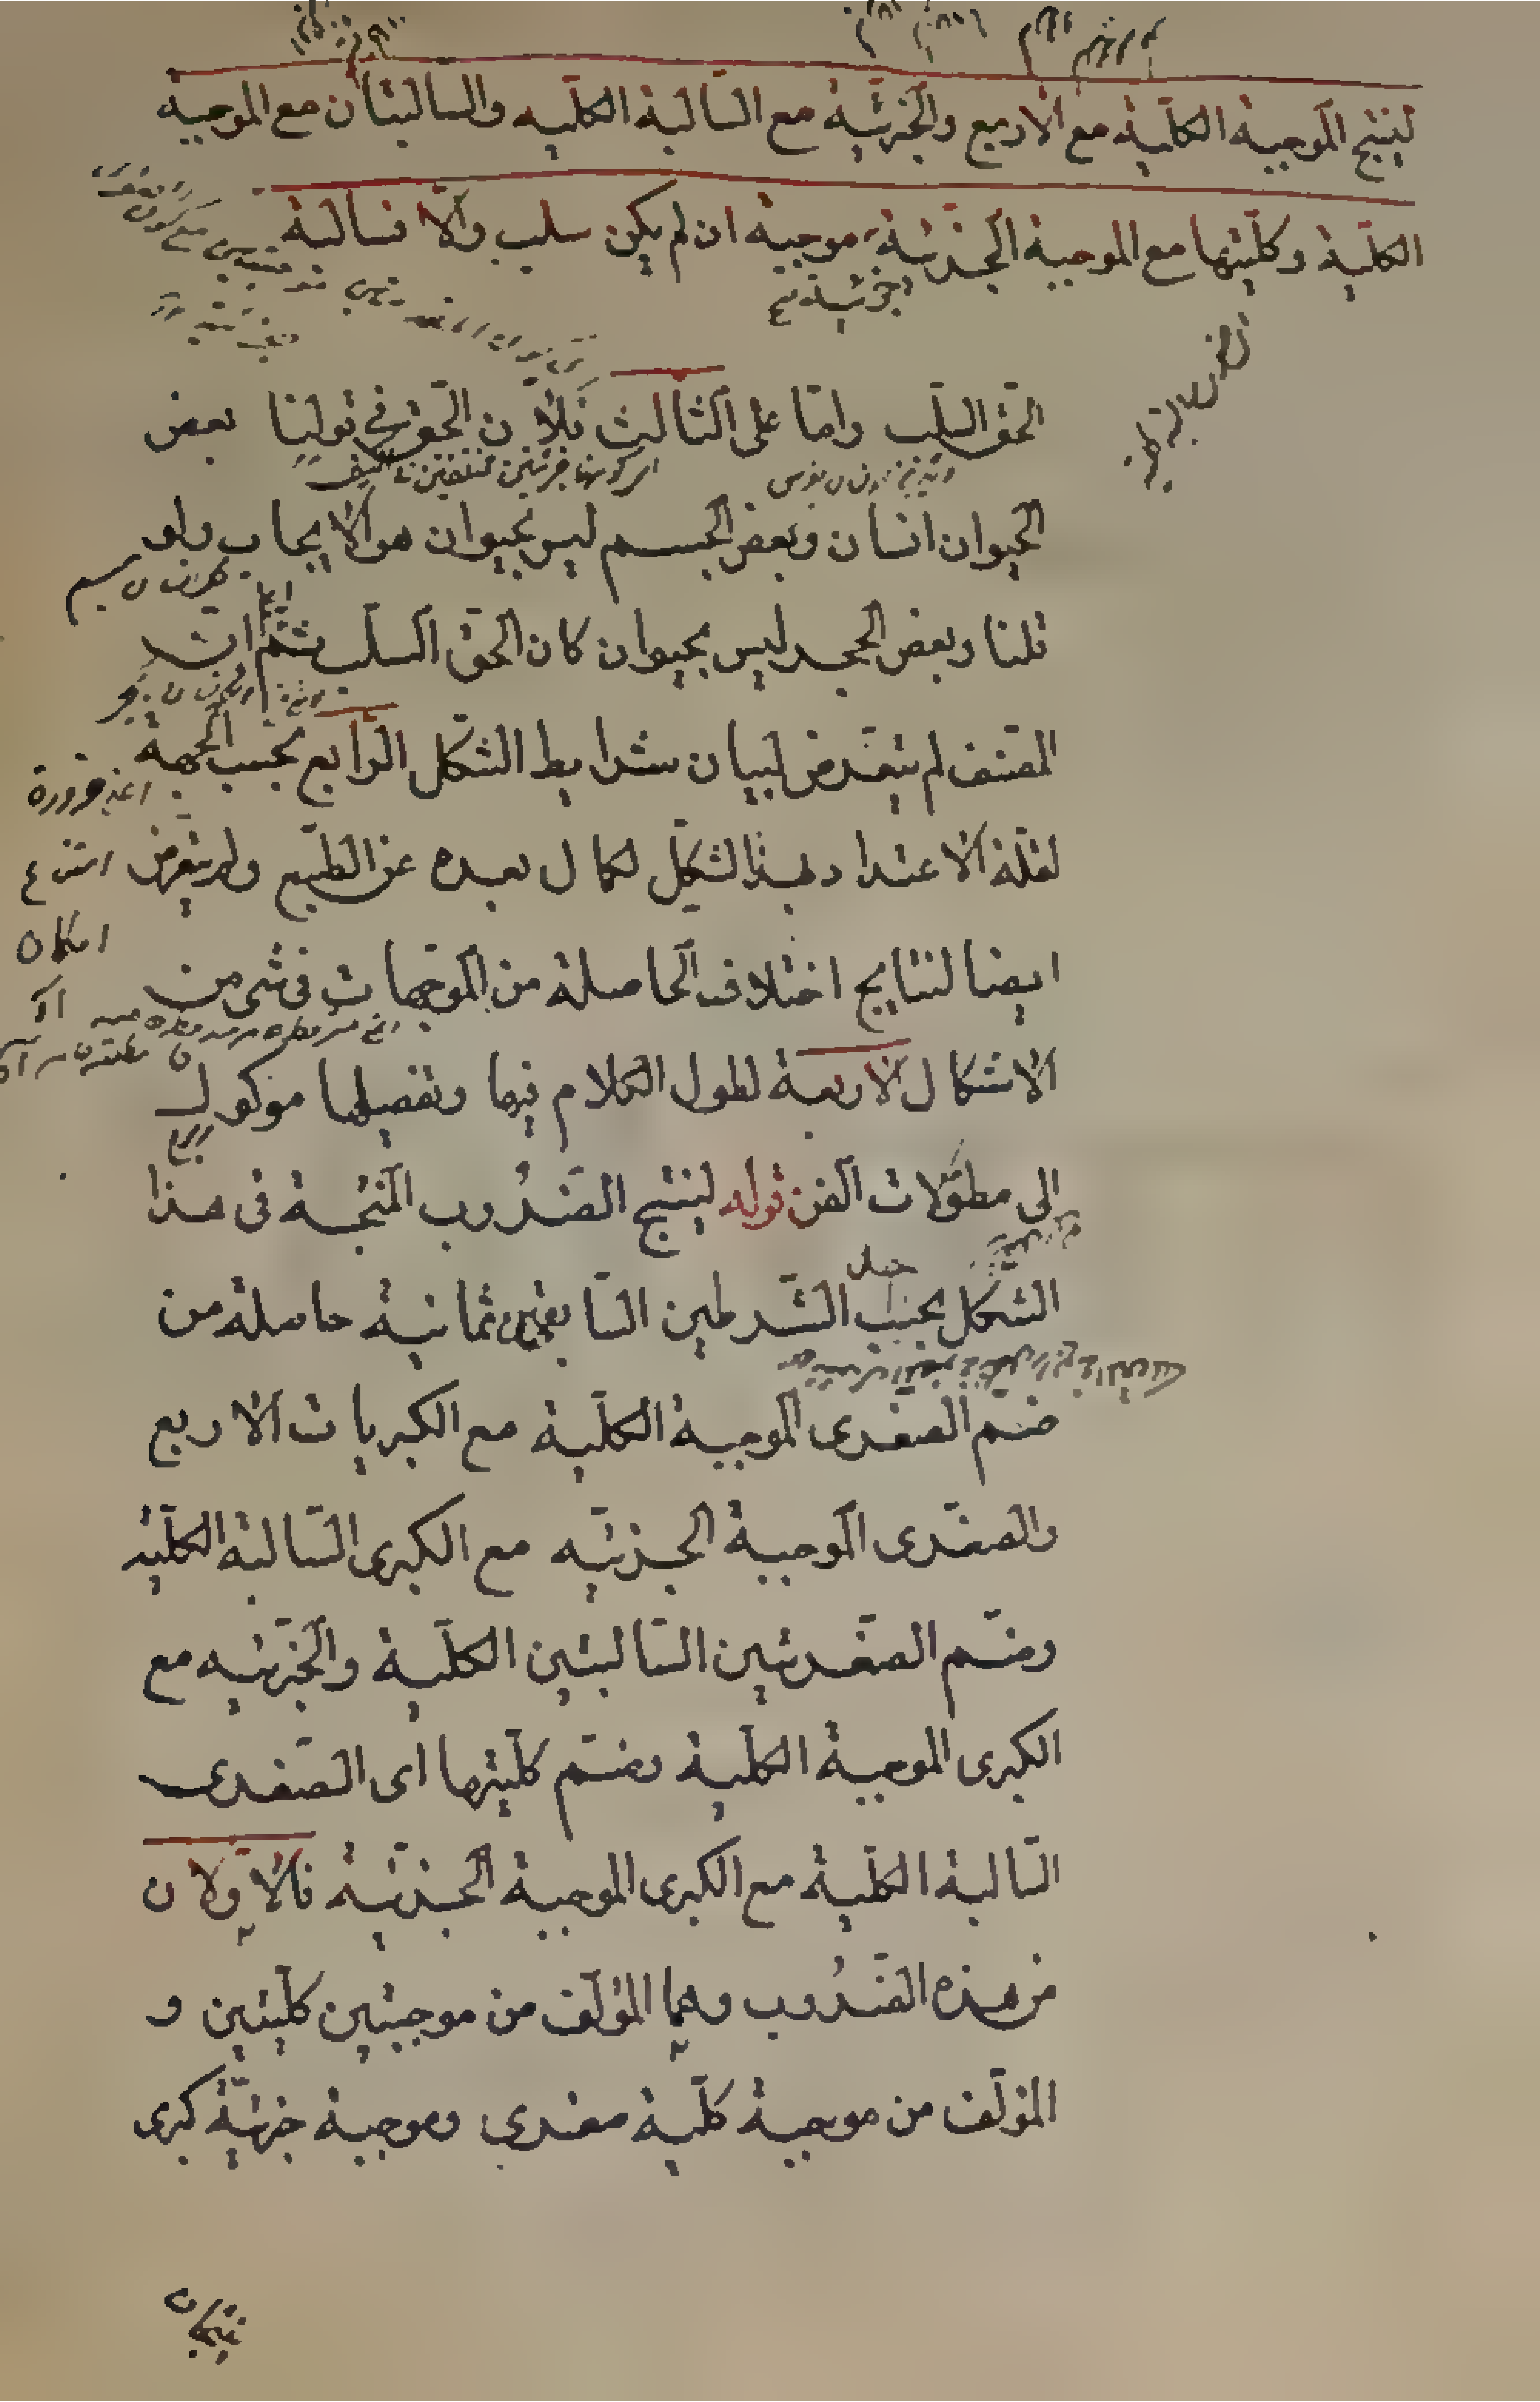 لينتج الموجبة الكلّية مع الأربع والجزئيّة مع السّالبة الكلّيه والسالبتان مع الموجبة
الكلّية وكلّيتها مع الموجبة الجزئيّة موجبة ان لم يكن سلب والّا فسالبة
جزئية
الحقّ السّلب وامّا على الثّالث فلأنّ الحقّ في قولنا بعض
الحيوان انسان وبعض الجسم ليس بحيوان هو الايجاب ولو
قلنا وبعض الحجر ليس بحيوان كان الحقّ السّلب ثمّ انّ
المصنّف لم يتعرّض لبيان شرايط الشّكل الرّابع بحسب الجهة
لقلّة الاعتداد بهذا الشكل لكمال بعده عن الطّبع ولم يتعرّض
ايضا لنتايج اختلاف الحاصلة من الموجّهات في شى من
الاشكال الاربعة لطول الكلام فيها وتفصيلها موكول
الى مطوّلات الفن قوله لينتج الضّروب المنتجة فى هذا
الشكل بحسب الشّرطين السّابقين ثمانية حاصلة من
ضمّ الصّغرى الموجبة الكلّية مع الكبريات الاربع
والصغرى الموجبة الجزئيّه مع الكبرى السّالبة الكلّيّه
وضمّ الصّغريين السّالبتين الكلّية والجزئيه مع
الكبرى الموجبة الكلّية وضمّ كلّيتها اى الصّغرى
السّالبة الكلّية مع الكبرى الموجبة الجزئيّة فالاوّلان
من هذه الضّروب وهما المؤلّف من موجبتين كلّيتين و
المؤلّف من موجبة كلّية صغرى وموجبة جزئيّة كبرى